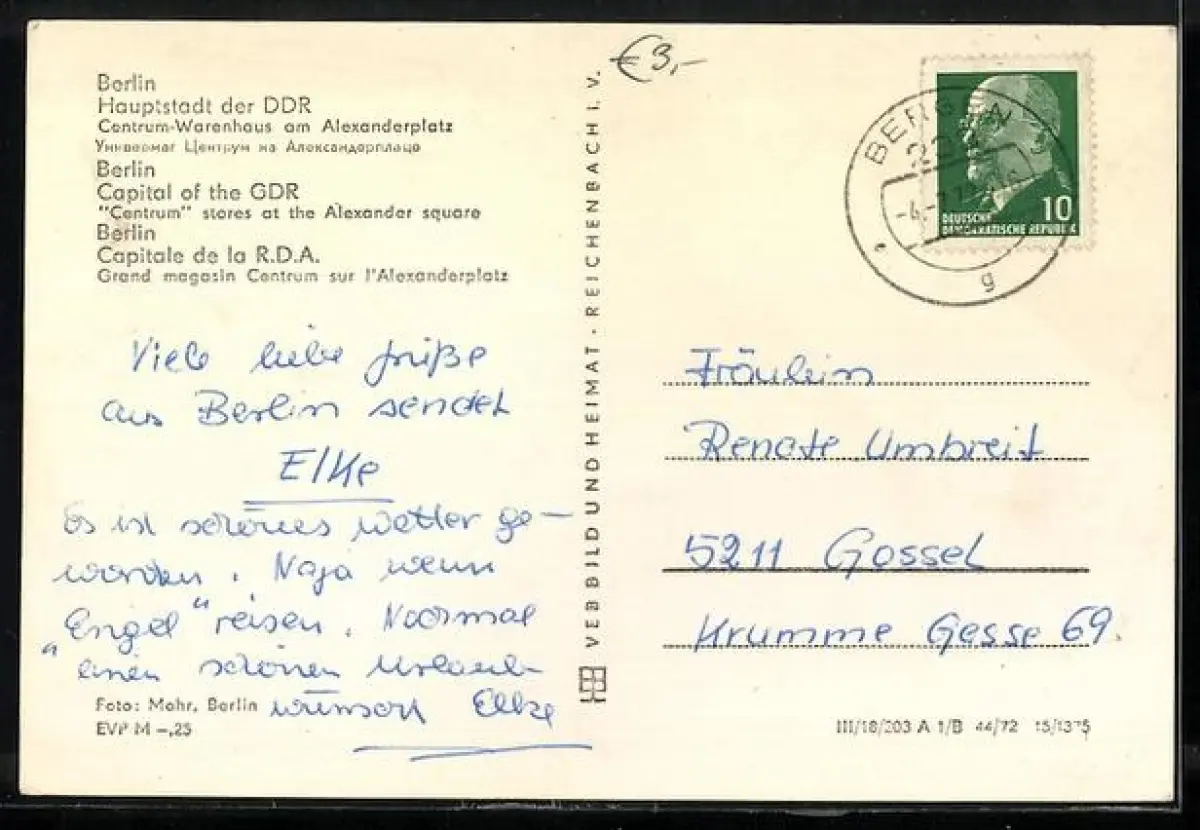 Berlin
Hauptstadt der DDR
Centrum-Warenhaus am Alexanderplatz
Универмаг Центрум на Александерплаце
Berlin
Capital of the GDR
"Centrum" stores at the Alexander square
Berlin
Capitale de la R.D.A.
Grand magasin Centrum sur l'Alexanderplatz
Viele liebe Grüße
aus Berlin sendet
Elke
Es ist schönes Wetter ge-
worden. Naja wenn
"Engel" reisen. Nochmal
einen schönen Urlaub
wünscht Elke
Foto: Mohr, Berlin
EVP M -,25
VEB BILD UND HEIMAT · REICHENBACH i. V.
€ 3,-
BERLIN
g
10
DEUTSCHE
DEMOKRATISCHE REPUBLIK
Fräulein
Renate Umbreit
5211 Gossel
Krumme Gasse 69.
III/18/203 A 1/B 44/72 15/1375